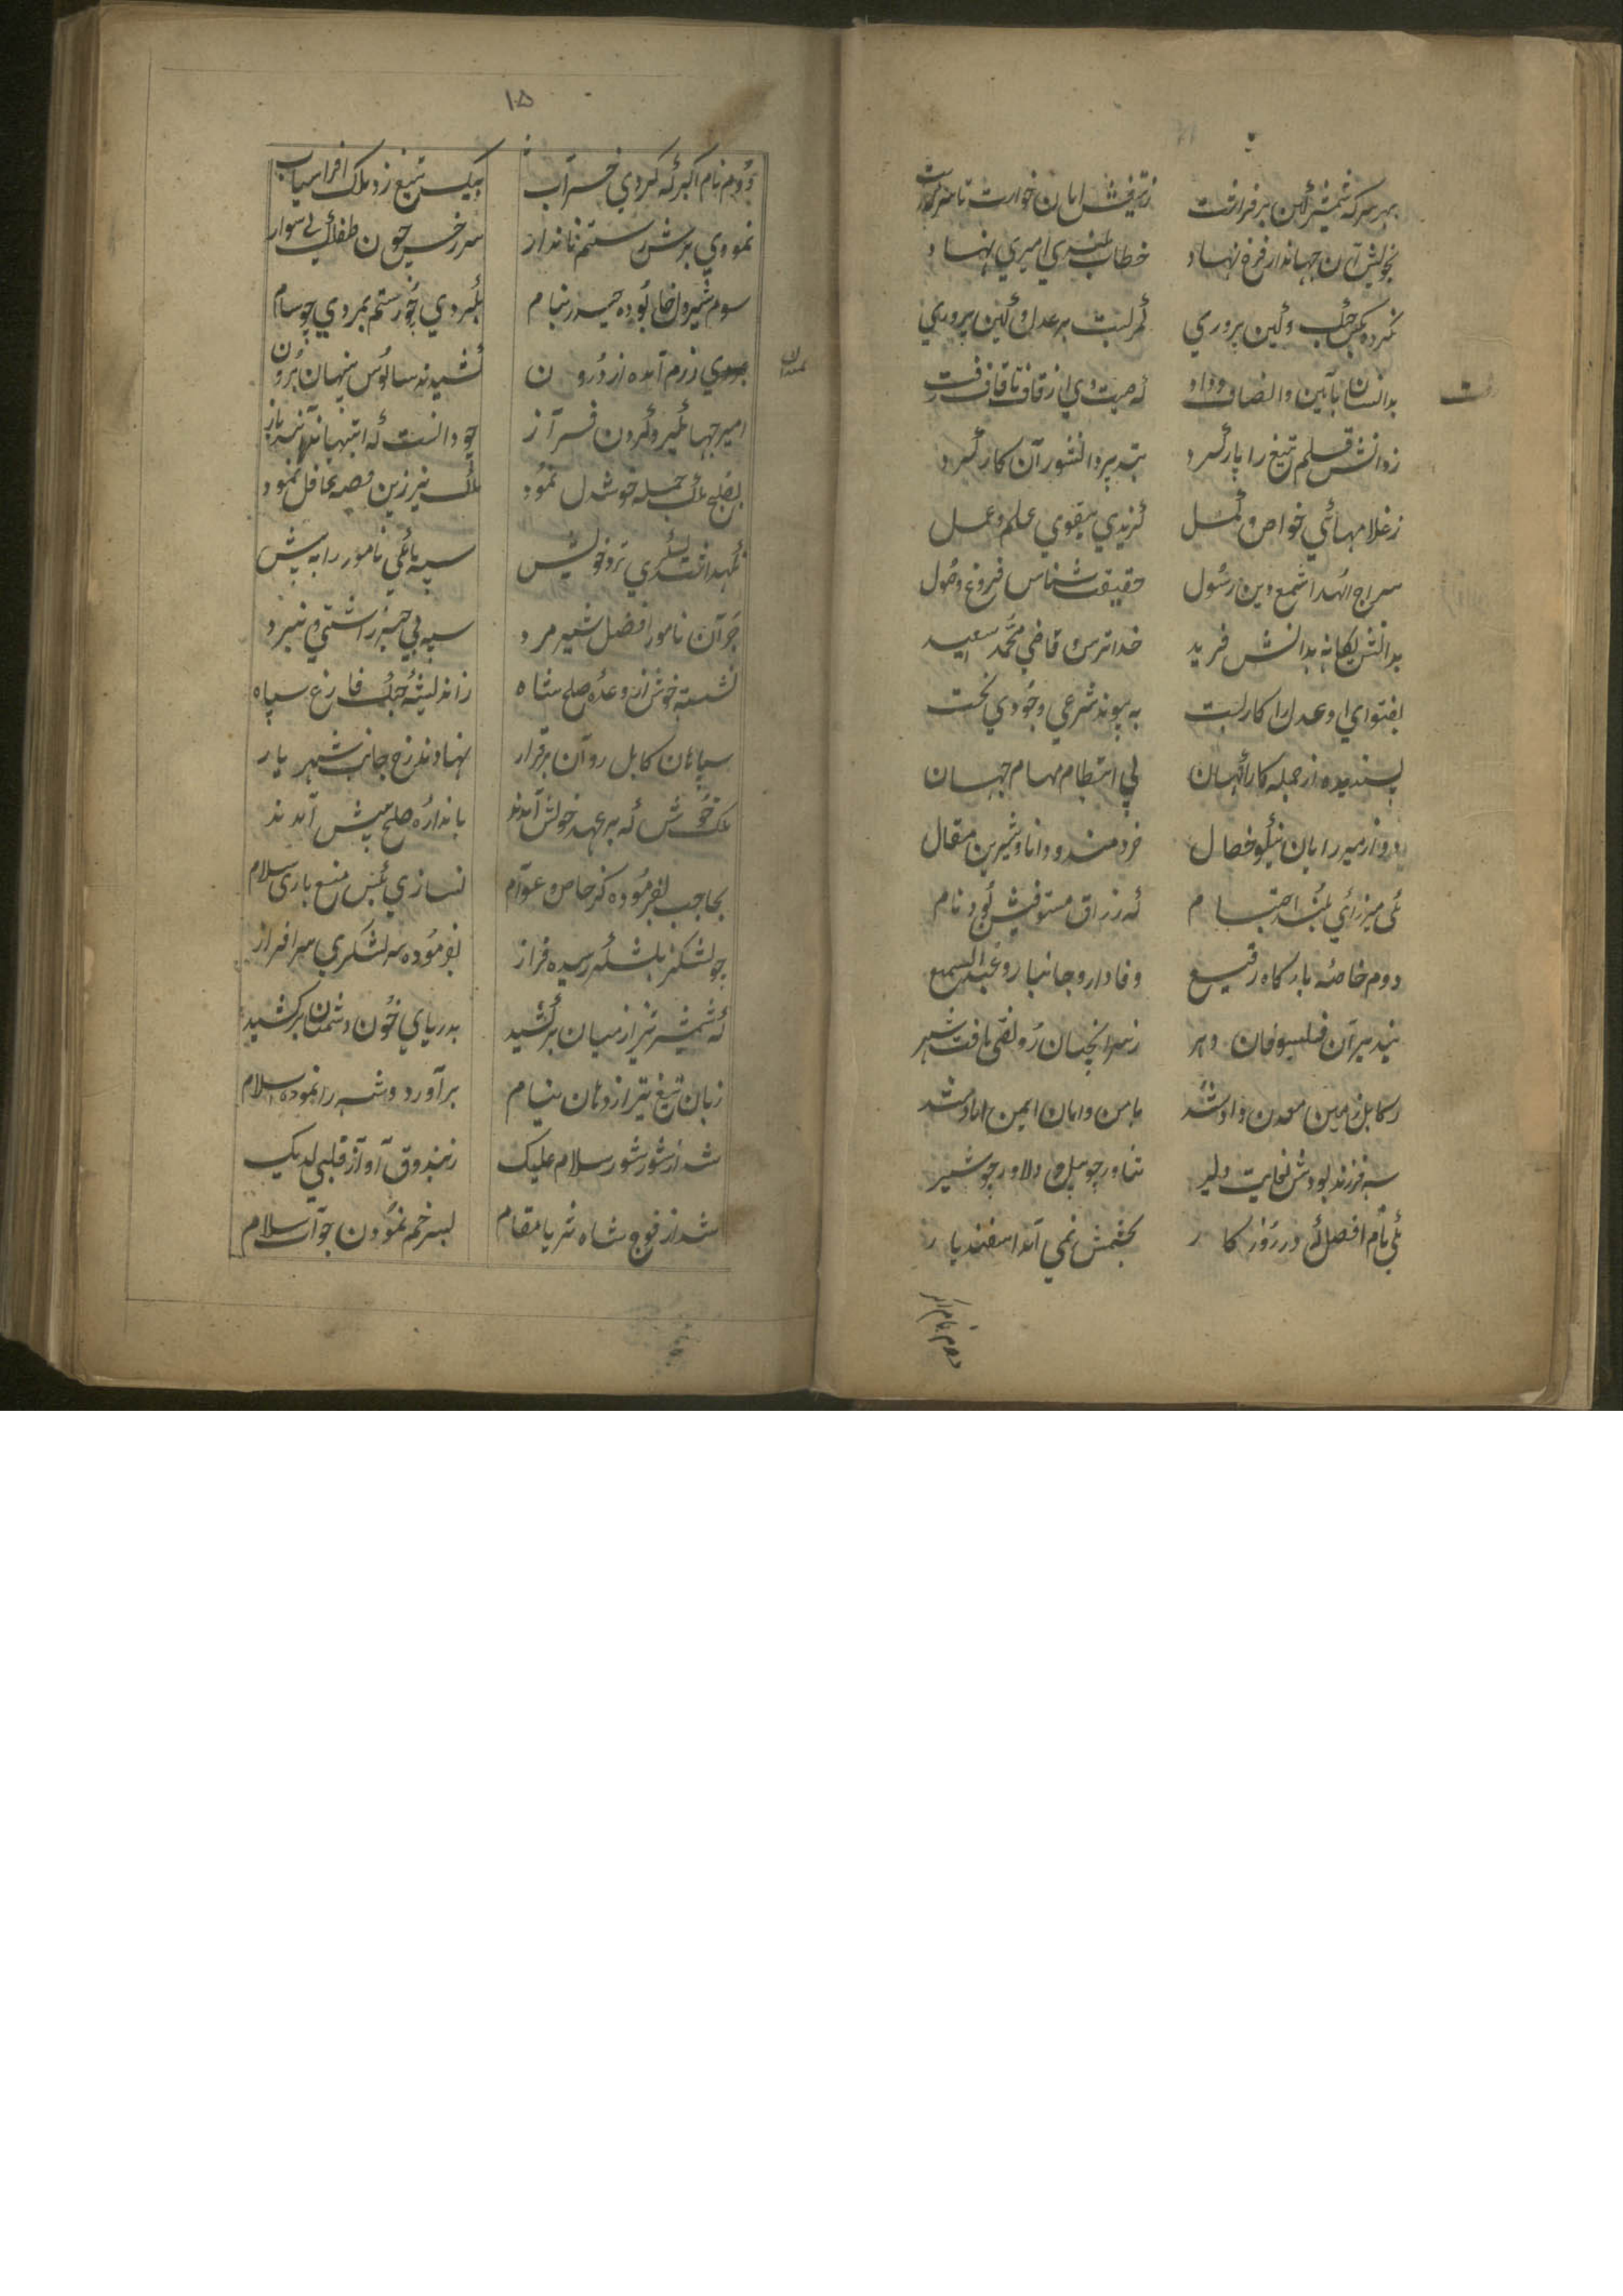 بهر سر که شمشیر کین بر فراخت
ز تیغش امان خواست تا سر
بخویش آن جهاندار فرخ نهاد
خطاب امیری نهاد
نکرده بکس جنگ و کین پروری
کمر بست بر عدل و دین پروری
بدانسان بآیین و انصاف و داد
که صیت وی از قاف تا قاف رفت
ز دانش قلم تیغ را پار کرد
بتدبیر دانشور آن کار کرد
ز غلامهائی خواص و کمل
گزیدی بتقوی علم و عمل
سراج الهدا شمع دین رسول
حقیقت شناس فروع و اصول
بدانش یگانه بدانش فرید
خداترس قاضی محمد سعید
بفتوای او عدل را کار بست
به پیوند شرعی وجودی نخست
پسندیده از جمله کارآگهان
پی انتظام مهام جهان
دو از میرزایان نیکو خصال
خردمند و دانا و شیرین مقال
یکی میرزائی بلند احتشام
که رزاق مستوفیش بود نام
دوم خاصه بارگاه رفیع
وفادار و جانباز و عبدالسمیع
پدید میر آن فیلسوفان دهر
ز سر آنچنان رونقی یافت شهر
که کابل زمین معدن داد شد
بامن و امان ایمن آباد شد
سه فرزند بودش نجابت دلیر
تناور چو پیل و دلاور چو شیر
یکی نام افضل که در روز کار
بچشمش نمی آمد اسفندیار
دوم نام اکبر
۱۰۵
دوم نام اکبر که کردی خراب
بیک تیغ زد ملک افراسیاب
نمودی برش رستم نامدار
سر رخش چون طفلک نی سوار
سوم شیر دل خان بوده حیدر بنام
بگردی چو رستم بمردی چو سام
میدان
بروی زرم آمده از درون
کشیدند سالوس پنهان برون
امیر جهانگیر و گردون فراز
چو دانست که اینها نیند باز
بصلح ملک جمله خوشدل نمود
ملک نیز زین قصه غافل نمود
نگهداشت لشکری نزد خویش
سپه یکی نامور را به پیش
جز آن نامور افضل شیر مرد
سپه بی خبر ز آشتی و نبرد
نشسته خوش از وعده صلح شاه
ز اندیشه جنگ فارغ سپاه
سپاهان کابل رو آن برقرار
نهادند رخ جانب شهر یار
ملک خوش که بر عهد خویش آمدند
باندازه صلح پیش آمدند
بحاجب بفرموده کز خاص و عوام
نسازی بکس منع بار سلام
چو لشکر بلشکر رسیده فراز
بفرموده سه لشکری سرافراز
که شمشیر تیز از میان برکشید
بدریای خون دشمنان برکشید
زبان تیغ تیز از دهان نیام
برآورد و شه را نموده سلام
شد از شور شور سلام علیک
ز بندوق آواز قلبی لدیک
شد از فوج شاه ثریا مقام
بسر خم نمودن جواب سلام